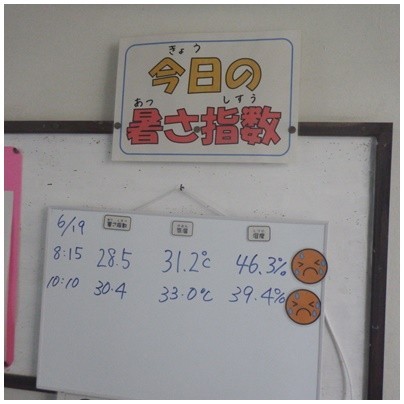 きょう
今日の
あつ しすう
暑さ指数
6/19 暑さ指数 気温 湿度
8:15 28.5 31.2℃ 46.3%
10:10 30.4 33.0℃ 39.4%